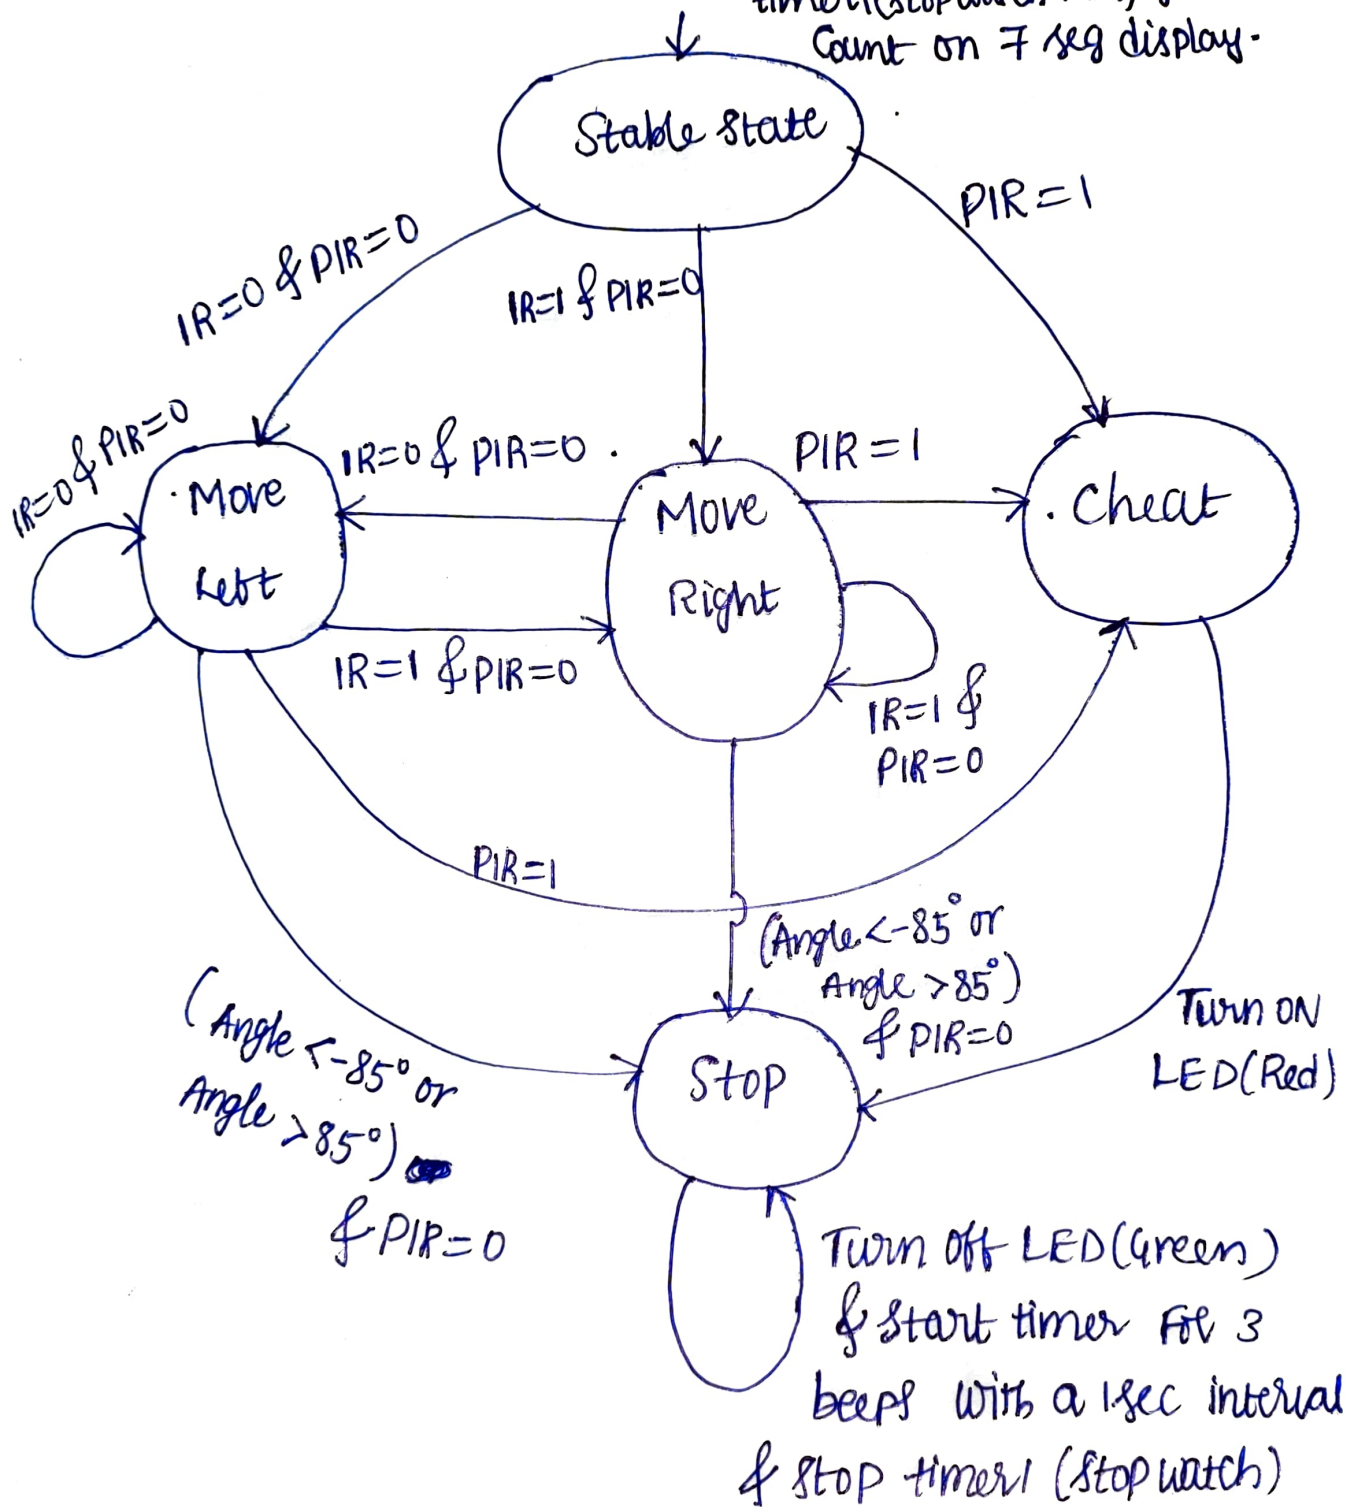 Count on 7 seg display.
Stable state
PIR=1
IR=0 & PIR=0
IR=1 & PIR=0
IR=0 & PIR=0
IR=0 & PIR=0
PIR=1
Move
Left
Move
Right
Cheat
IR=1 & PIR=0
IR=1 &
PIR=0
PIR=1
(Angle<-85° or
Angle >85°)
& PIR=0
(Angle <-85° or
Angle >85°)
& PIR=0
Turn ON
LED(Red)
Stop
Turn off LED(Green)
& Start timer For 3
beeps with a 1sec interval
& stop timer1 (stopwatch)